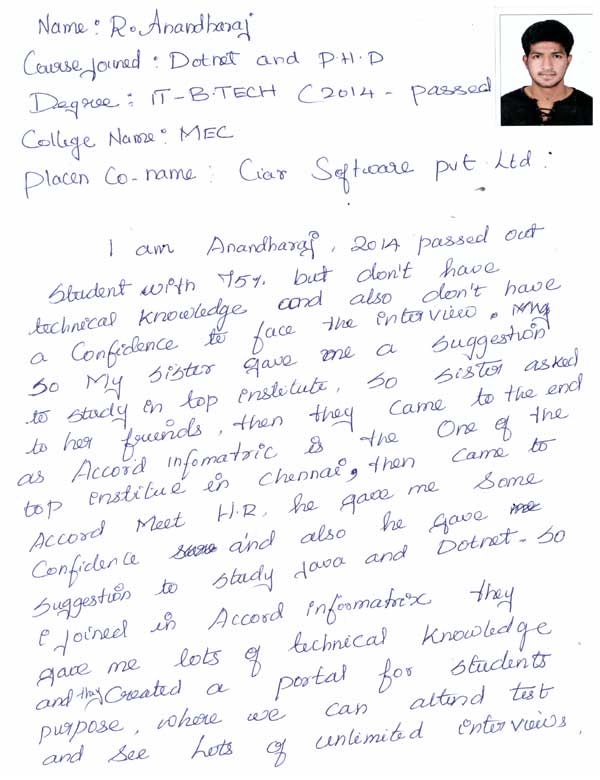 Name: R. Anandharaj
Course joined: Dotnet and P.H.D
Degree: IT-B.TECH (2014 - passed
College Name: MEC
Placen Co-name: Ciar Software pvt Ltd.
I am Anandharaj, 2014 passed out
student with 75% but don't have
technical knowledge and also don't have
a Confidence to face the interview.
So My sister gave me a suggestion
to study in top institute, so sister asked
to her friends, then they came to the end
as Accord infomatric is the One of the
top institue in chennai, then came to
Accord Meet H.R, he gave me some
Confidence and also he gave me
suggestion to study java and Dotnet - so
i joined in Accord informatrix they
gave me lots of technical knowledge
and they Created a portal for students
purpose, where we can attend test
and see lots of unlimited interviews.